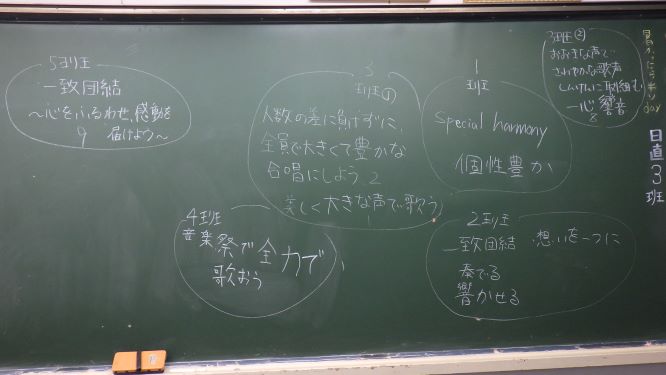 5班
一致団結
〜心をふるわせ、感動を
届けよう〜
9
3
班①
人数の差に負けずに、
全員で大きくて豊かな
合唱にしよう 2
美しく大きな声で歌う
1
1
班
special harmony
個性豊か
3班②
おおきな声で
さわやかな歌声
しんけんに取組む
一心響音
8
4班
音楽祭で全力で
歌おう
2班
一致団結 想いを一つに
奏でる
響かせる
日直3班